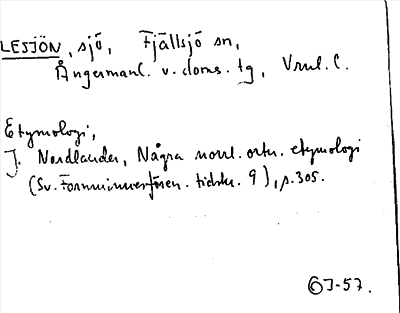 LESJÖN, sjö, Fjällsjö sn,
Ångermanl. v. doms. tg,
Etymologi,
J. Nordlander, Några norrl. ortn. etymologi
(Sv. Fornminnesfören. tidskr. 9), s. 305.
J-57.